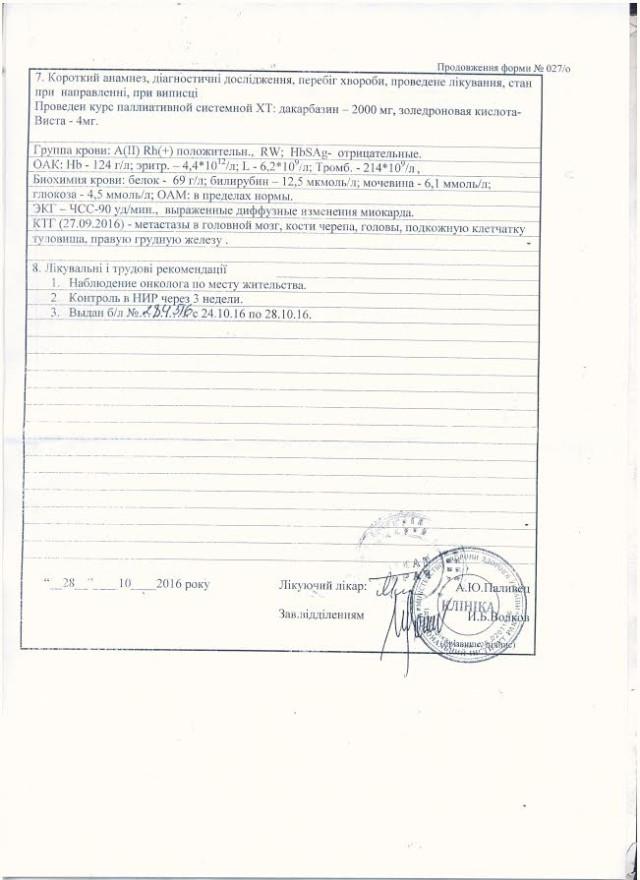 Продовження форми № 027/о
7. Короткий анамнез, діагностичні дослідження, перебіг хвороби, проведене лікування, стан
при направленні, при виписці
Проведен курс паллиативной системной ХТ: дакарбазин – 2000 мг, золедроновая кислота-
Виста - 4мг.
Группа крови: А(II) Rh(+) положительн., RW; HbSAg- отрицательные.
ОАК: Hb - 124 г/л; эритр. – 4,4*10¹²/л; L - 6,2*10⁹/л; Тромб. - 214*10⁹/л ,
Биохимия крови: белок - 69 г/л; билирубин – 12,5 мкмоль/л; мочевина - 6,1 ммоль/л;
глюкоза - 4,5 ммоль/л; ОАМ: в пределах нормы.
ЭКГ – ЧСС-90 уд/мин., выраженные диффузные изменения миокарда.
КТГ (27.09.2016) - метастазы в головной мозг, кости черепа, головы, подкожную клетчатку
туловища, правую грудную железу .
8. Лікувальні і трудові рекомендації
1. Наблюдение онколога по месту жительства.
2 Контроль в НИР через 3 недели.
3. Выдан б/л №284316 с 24.10.16 по 28.10.16.
“__28__” ____10____2016 року
Лікуючий лікар: А.Ю.Паливец
Зав.відділенням И.Б.Волков
КЛІНІКА